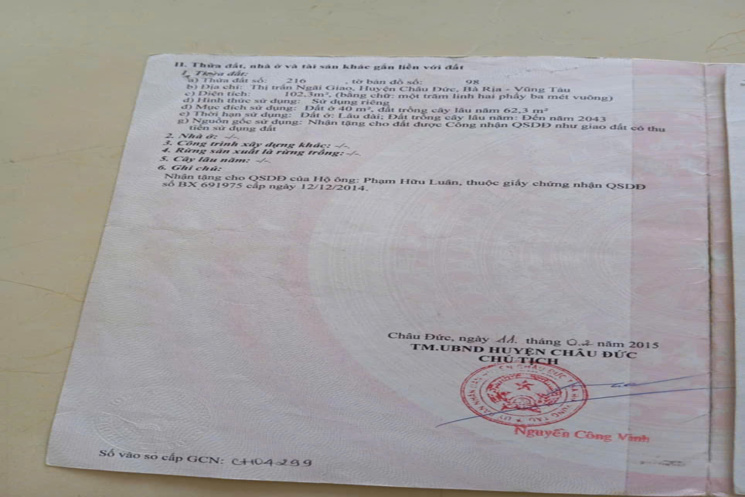 II. Thửa đất, nhà ở và tài sản khác gắn liền với đất
1. Thửa đất:
a) Thửa đất số: 216 , tờ bản đồ số: 98
b) Địa chỉ: Thị trấn Ngãi Giao, Huyện Châu Đức, Bà Rịa - Vũng Tàu
c) Diện tích: 102,3m², (bằng chữ: một trăm linh hai phẩy ba mét vuông)
d) Hình thức sử dụng: Sử dụng riêng
đ) Mục đích sử dụng: Đất ở 40 m², đất trồng cây lâu năm 62,3 m²
e) Thời hạn sử dụng: Đất ở: Lâu dài; Đất trồng cây lâu năm: Đến năm 2043
g) Nguồn gốc sử dụng: Nhận tặng cho đất được Công nhận QSDĐ như giao đất có thu
tiền sử dụng đất
2. Nhà ở: -/-
3. Công trình xây dựng khác: -/-
4. Rừng sản xuất là rừng trồng: -/-
5. Cây lâu năm: -/-
6. Ghi chú:
Nhận tặng cho QSDĐ của Hộ ông: Phạm Hữu Luân, thuộc giấy chứng nhận QSDĐ
số BX 691975 cấp ngày 12/12/2014.
Châu Đức, ngày 11 tháng 02 năm 2015
TM.UBND HUYỆN CHÂU ĐỨC
CHỦ TỊCH
Nguyễn Công Vinh
Số vào sổ cấp GCN: CH04299